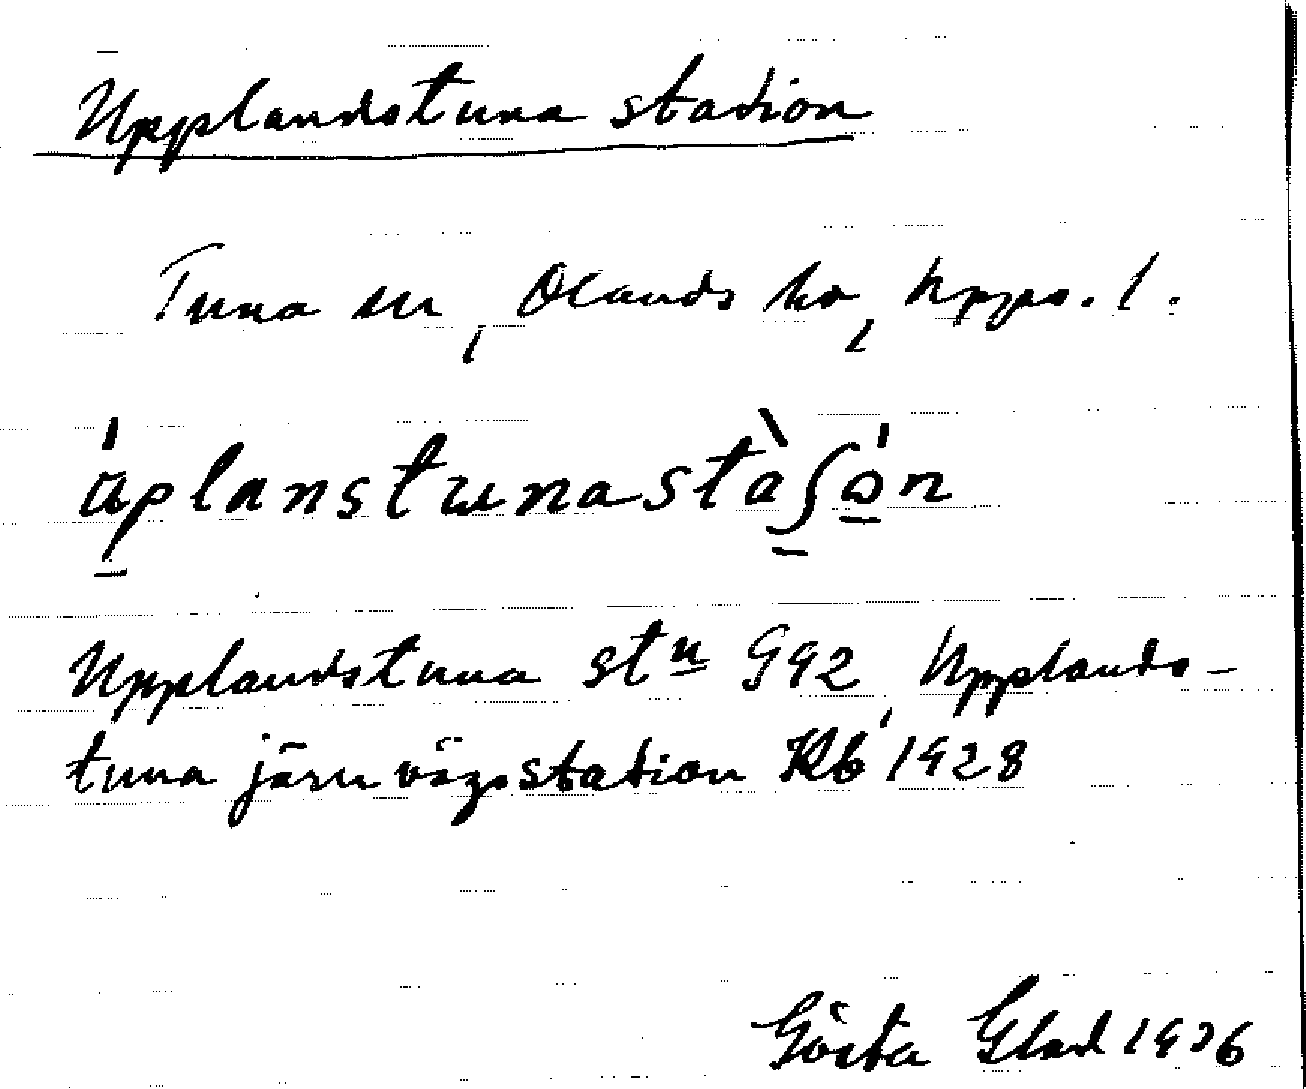 Upplandstuna station
Tuna sn, Olands hd, Upps. l.
áplanstunastàʃón
Upplandstuna stn G92, Upplands-
tuna järnvägsstation Kb 1928
Gösta Glad 1936